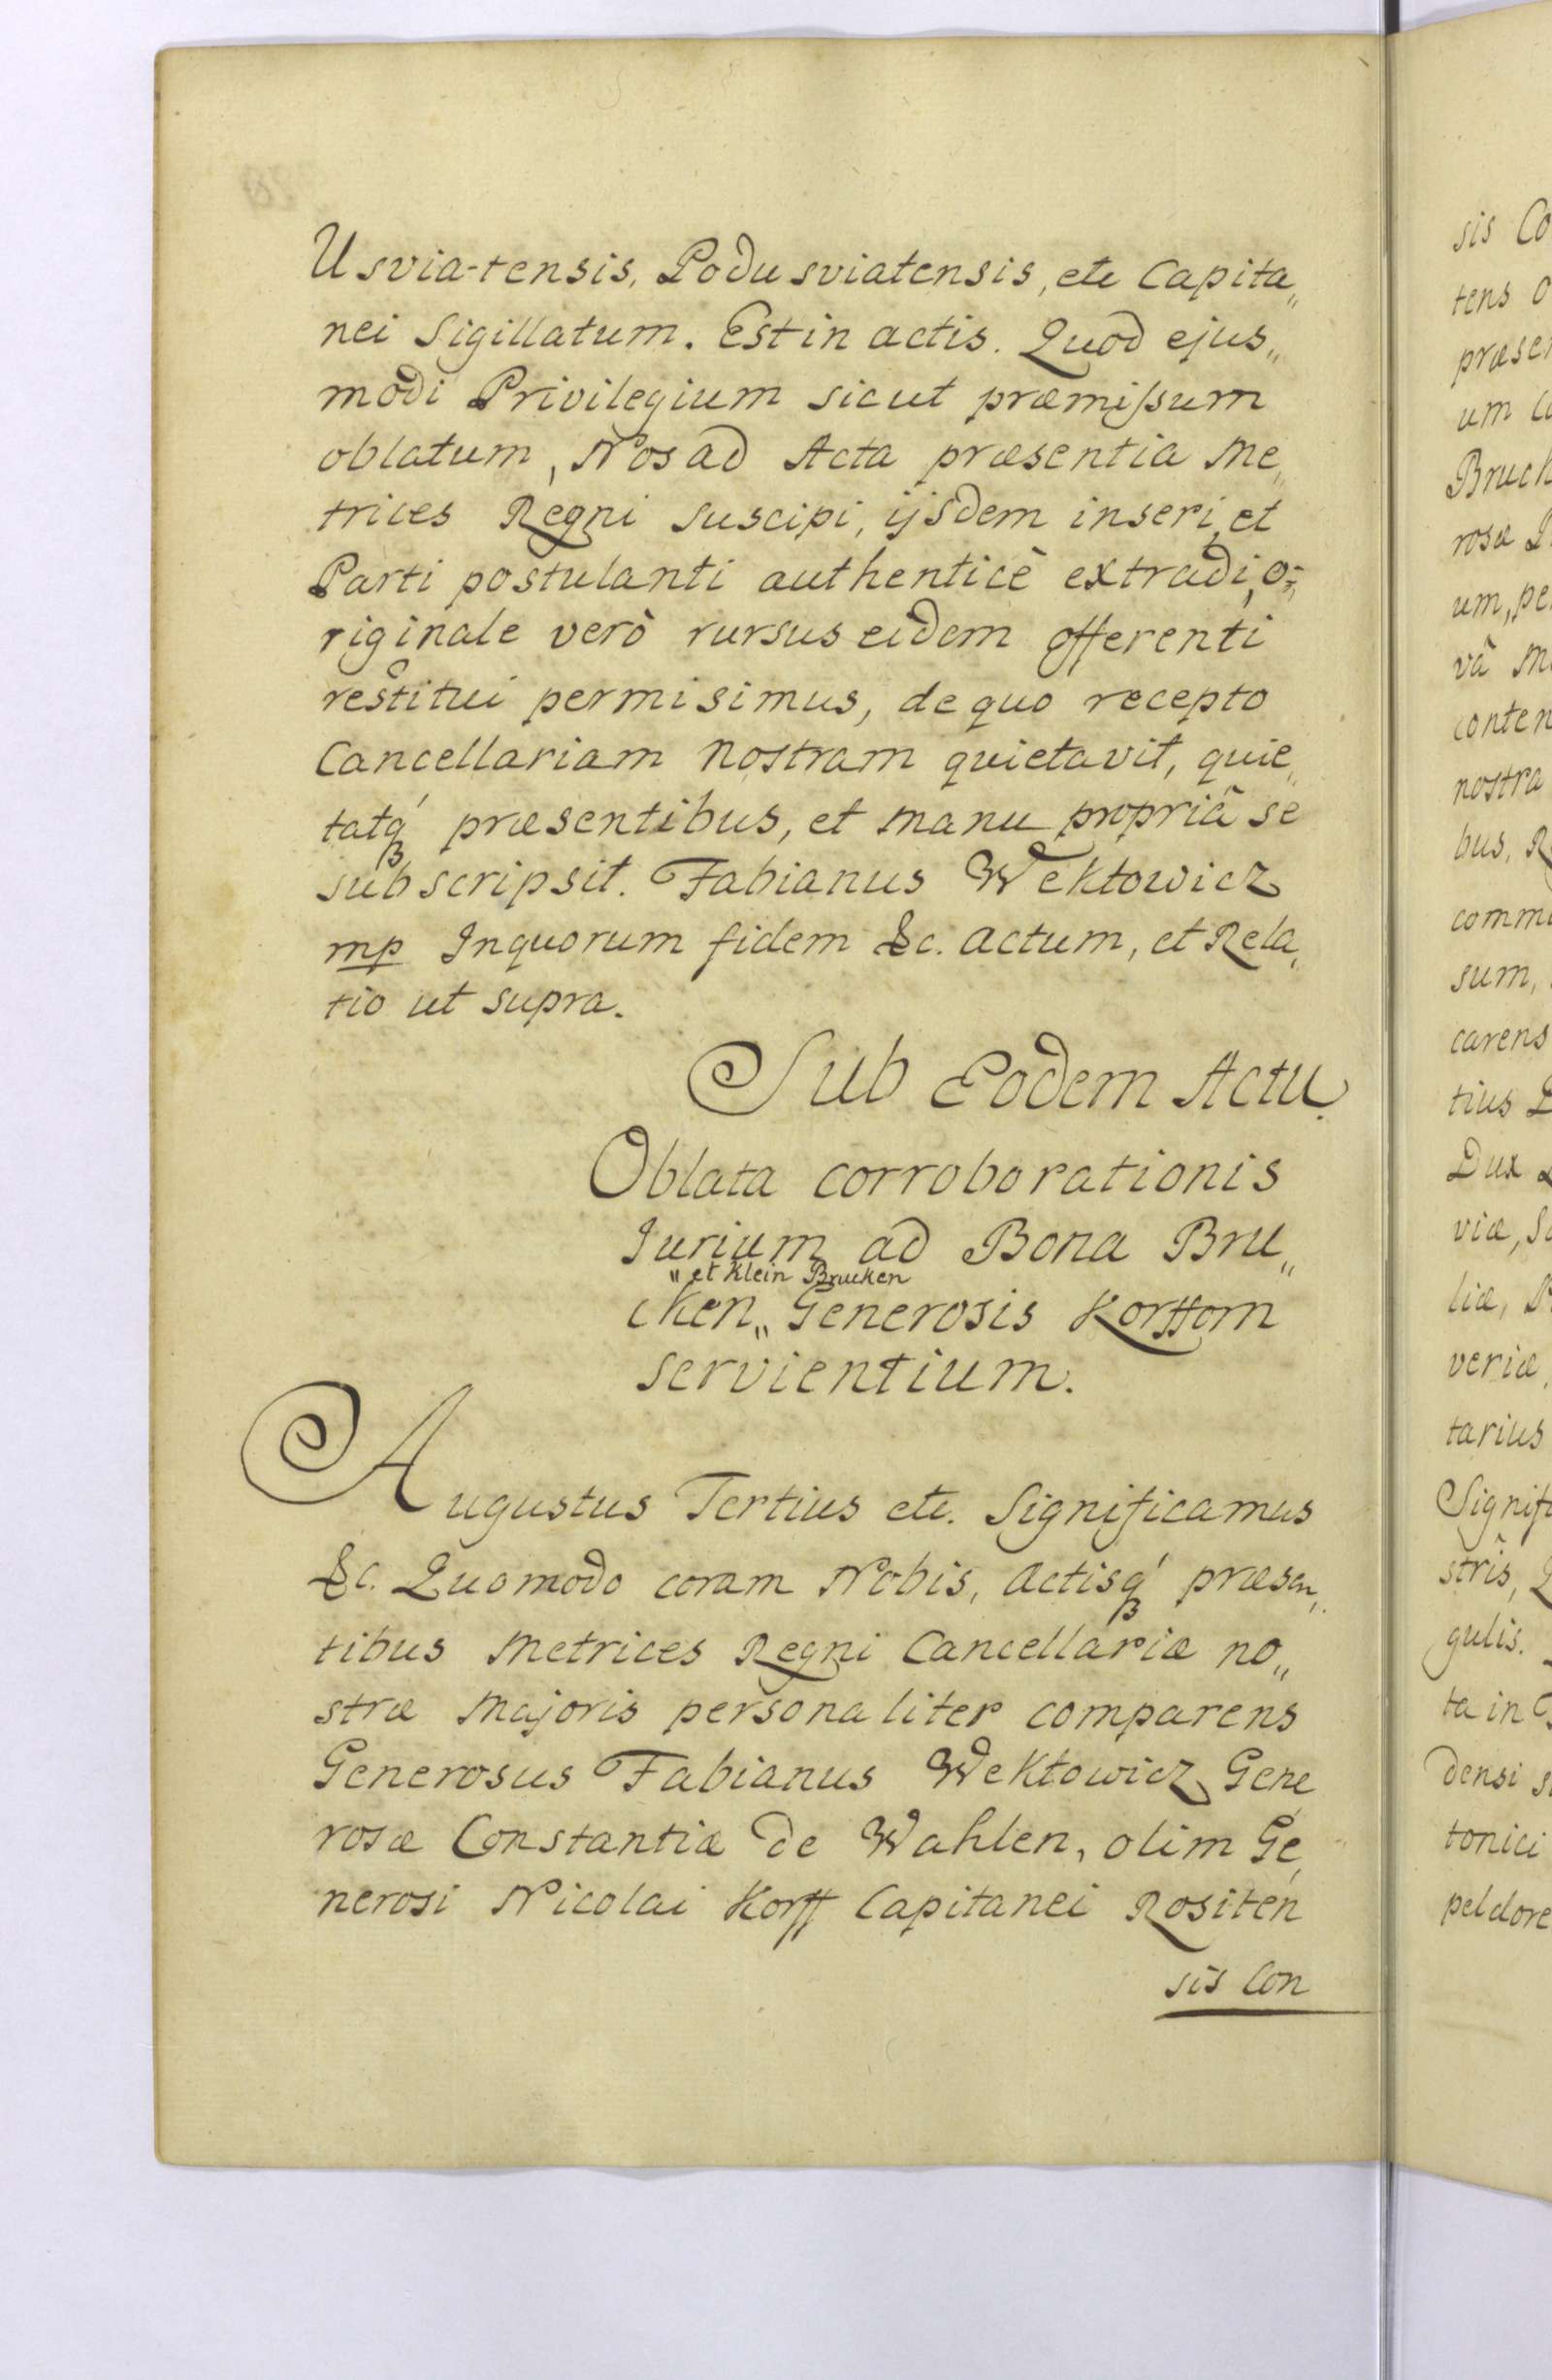 Usvia-tensis, Podusviatensis, etc Capita„
nei Sigillatum. Est in actis. Quod ejus„
modi Privilegium sicut præmissum
oblatum, Nos ad Acta præsentia Me„
trices Regni suscipi, ijsdem inseri, et
Parti postulanti authenticè extradi, o„
riginale verò rursus eidem offerenti
restitui permisimus, de quo recepto
Cancellariam Nostram quietavit, quie„
tatq́ præsentibus, et manu propriâ se
subscripsit. Fabianus Wektowicz
mp Inquorum fidem &c. actum, et Rela„
tio ut supra.
Sub Eodem Actu.
Oblata corroborationis
Jurium ad Bona Bru„
„ et Klein Brucken
cken„ Generosis Korffom
servientium.
Augustus Tertius etc. Significamus
&c. Quomodo coram Nobis, actisq́ præsen„
tibus Metrices Regni Cancellariæ no„
stræ Majoris personaliter comparens
Generosus Fabianus Wektowicz Gene„
rosæ Constantiæ de Wahlen, olim Ge„
nerosi Nicolai Korff Capitanei Rositen
sis Con
sis Co
tens O
præsen
um Co
Bruck
rosæ
um, pe
vâ M
conten
nostra
bus, R
comm
sum,
carens
tius
Dux
viæ, S
liæ, P
veriæ,
tarius
Signifi
stris, Q
gulis.
ta in
densi s
tonici
peldore